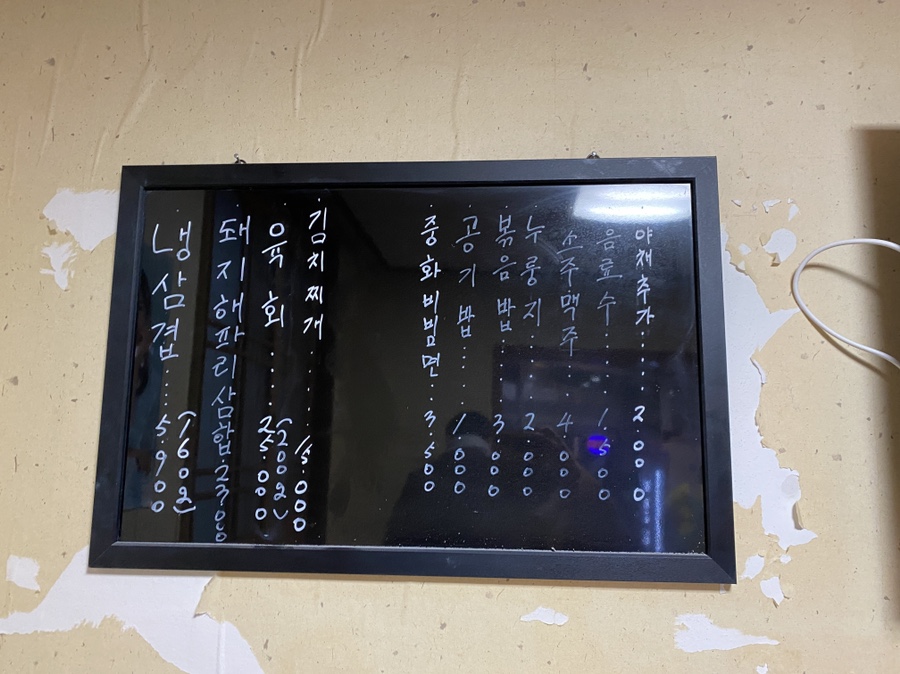 냉삼겹.....5900
(160g)
돼지해파리삼합23000
육회.....25.000
(200g)
김치찌개....15.000
중화비빔면..3.500
공기밥....1.000
볶음밥....3.000
누룽지....2.000
소주맥주..4.000
음료수....1.500
야채추가....2.000